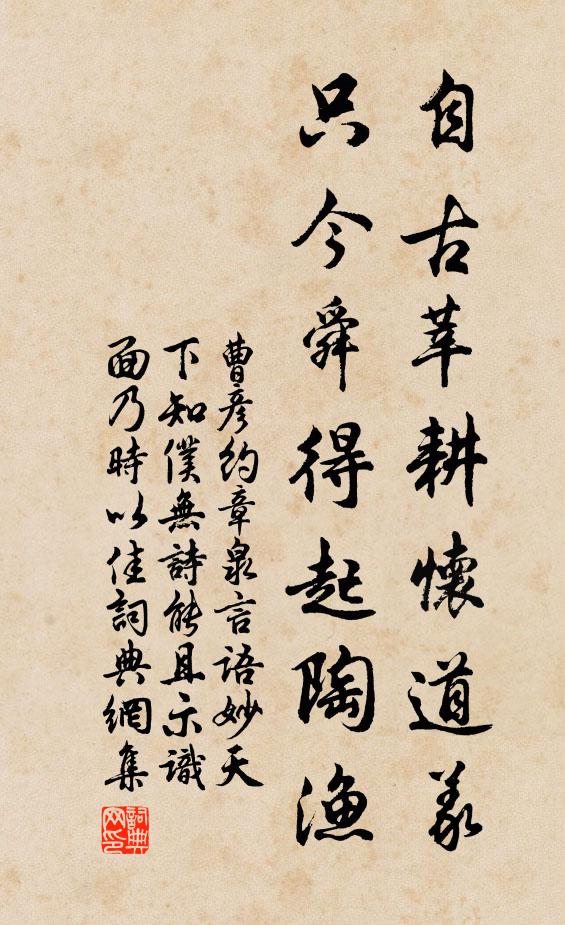 自古莘耕懷道義
只今舜得起陶漁
曹彥約章泉言語妙天
下知僕無詩能且示識
面乃時以佳詞典網集
詞典网印